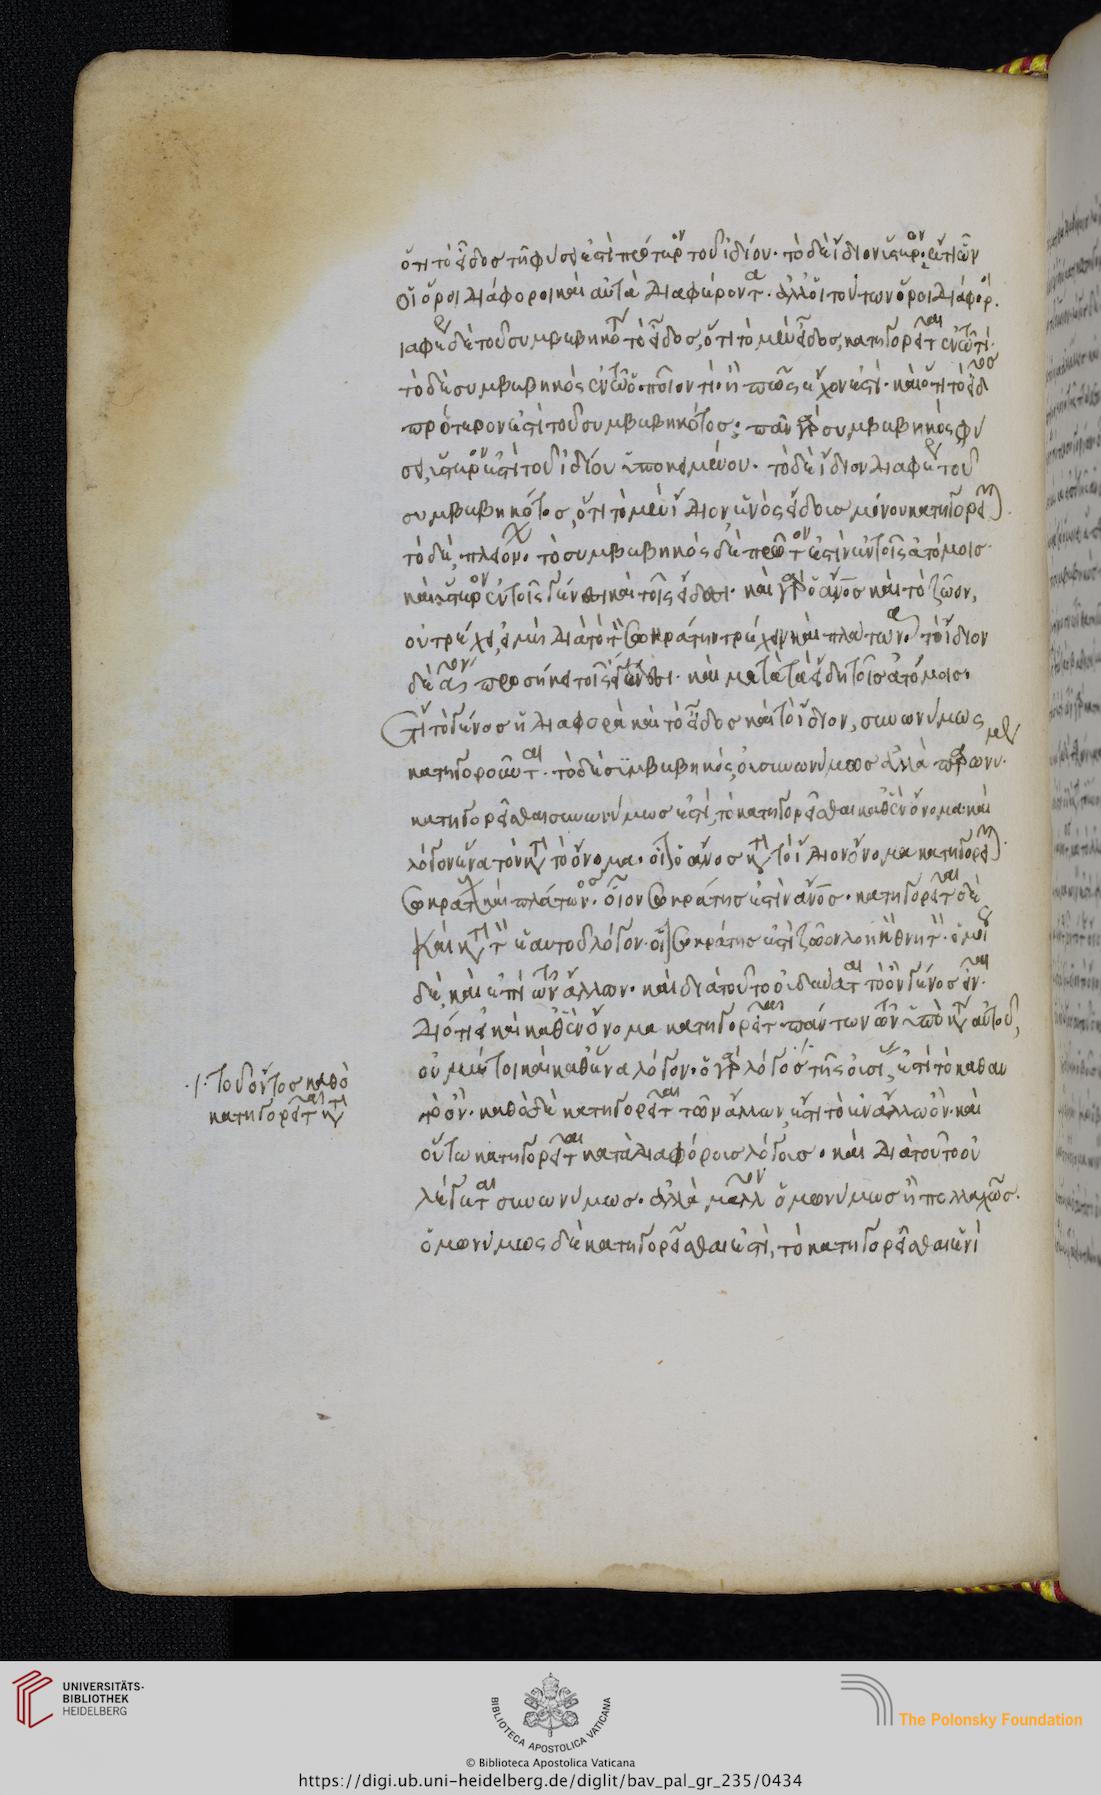 ὅτι τὸ εἶδος τῇ φύσει ἐστὶ πρότερον τοῦ ἰδίου· τὸ δὲ ἴδιον ὕστερον· ἔτι ὧν
οἱ ὅροι διάφοροι καὶ αὐτὰ διαφέροντα· ἀλλ' οἱ τούτων ὅροι διάφοροι.
διαφέρει δὲ τοῦ συμβεβηκότος τὸ εἶδος, ὅτι τὸ μὲν εἶδος, κατηγορεῖται ἐν τῷ τί·
τὸ δὲ συμβεβηκὸς ἐν τῷ ὁποῖον τι· ἢ πῶς ἔχον ἐστί· καὶ ὅτι τὸ εἶδος
πρότερον ἐστὶ τοῦ συμβεβηκότος· πᾶν γὰρ συμβεβηκὸς φύ
σει, ὕστερόν ἐστι τοῦ ἰδίου ὑποκειμένου· τὸ δὲ ἴδιον διαφέρει τοῦ
συμβεβηκότος, ὅτι τὸ μὲν ἴδιον, ἑνὸς εἴδους μόνου κατηγορεῖται
τὸ δὲ, πλειόνων· τὸ συμβεβηκὸς δὲ πρῶτον ἐστὶν ἐν τοῖς ἀτόμοις·
καὶ ὕστερον ἐν τοῖς γένεσι καὶ τοῖς εἴδεσι· καὶ γὰρ ὁ ἄνος καὶ τὸ ζῶον,
οὐ τρέχει, εἰ μὴ διὰ τὸ τὸν Σωκράτην τρέχειν καὶ πλάτωνα· τὸ ἴδιον
δὲ πρῶτον προσήκει τοῖς εἴδεσι· καὶ μετὰ τὰ εἴδη τοῖς ἀτόμοις.
Ἔτι τὸ γένος ἡ διαφορὰ καὶ τὸ εἶδος καὶ τὸ ἴδιον, συνωνύμως
κατηγοροῦνται· τὸ δὲ συμβεβηκὸς, οὐ συνωνύμως ἀλλὰ παρωνύμως·
κατηγορεῖσθαι συνωνύμως ἐστὶ, τὸ κατηγορεῖσθαι καθ' ἓν ὄνομα· καὶ
λόγον ἕνα τὸν κατὰ τὸ ὄνομα· οἷον ὁ ἄνος κατὰ τὸ ἴδιον ὄνομα κατηγορεῖται
Σωκράτους καὶ πλάτωνος· οἷον Σωκράτης ἐστὶν ἄνος· κατηγορεῖται δὲ
καὶ κατὰ τὸν ἑαυτοῦ λόγον· οἷον Σωκράτης ἐστὶ ζῶον λογικὸν θνητόν· ὁμοίως
δὲ, καὶ ἐπὶ τῶν ἄλλων· καὶ διὰ τοῦτο οὐ δύναται τὸ ὂν γένος εἶναι·
διότι εἰ καὶ καθ' ἓν ὄνομα κατηγορεῖται πάντων τῶν ὑπὸ αὐτοῦ,
οὐ μέντοι καὶ καθ' ἕνα λόγον· ὁ γὰρ λόγος τῆς οὐσίας, ἐστὶ τὸ καθ' αυ
τὸ ὄν· καθὸ δὲ κατηγορεῖται τῶν ἄλλων, ἐστὶ τὸ ἐν ἄλλω ὄν· καὶ
οὕτω κατηγορεῖται κατὰ διαφόρους λόγους· καὶ διὰ τοῦτο οὐ
λέγεται συνωνύμως· ἀλλὰ μᾶλλον ὁμωνύμως ἢ πολλαχῶς.
ὁμωνύμως δὲ κατηγορεῖσθαι ἐστὶ, τὸ κατηγορεῖσθαι ἑνὶ
τοῦ ὄντος καθὸ
κατηγορεῖται κατὰ
UNIVERSITÄTS-
BIBLIOTHEK
HEIDELBERG
BIBLIOTECA APOSTOLICA VATICANA
The Polonsky Foundation
© Biblioteca Apostolica Vaticana
https://digi.ub.uni-heidelberg.de/diglit/bav_pal_gr_235/0434